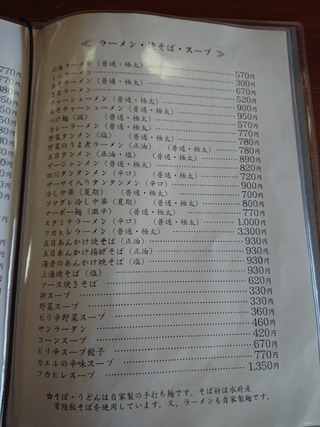 ≪ ラーメン・焼そば・スープ ≫
ラーメン（普通・極太） 570円
（普通・極太） 300円
670円
チャーシューメン（普通・極太） 520円
みそチャーシューメン（普通・極太） 900円
つけ麺（塩）（普通・極太） 950円
カレーラーメン（普通・極太） 570円
野菜タンメン（塩）（普通・極太） 770円
野菜のうま煮ラーメン（正油）（普通・極太） 780円
五目タンメン（正油・塩） 780円
ザージャンメン（普通・極太） 890円
四川タンタンメン（辛口）（普通・極太） 820円
ザーサイ入りタンタンメン（辛口） 720円
冷し中華（夏期）（普通・極太） 900円
ゴマダレ冷し中華（夏期）（普通・極太） 700円
マーボー麺（激辛）（普通・極太） 800円
スタミナラーメン（辛口）（普通・極太） 770円
フカヒレラーメン（普通・極太） 1,000円
五目あんかけ焼そば（正油） 3,300円
五目あんかけ揚げそば（正油） 930円
海老のあんかけ焼そば（塩） 930円
上海焼そば（塩） 930円
ソース焼きそば 930円
卵スープ 620円
野菜スープ 330円
ピリ辛野菜スープ 330円
サンラータン 360円
コーンスープ 460円
ピリ辛スープ餃子 420円
カエルの辛味スープ 670円
フカヒレスープ 770円
1,350円
☆そば・うどんは自家製の手打ち麺です。そば粉は水府産
常陸秋そばを使用しています。又、ラーメンも自家製です。
770円
770円